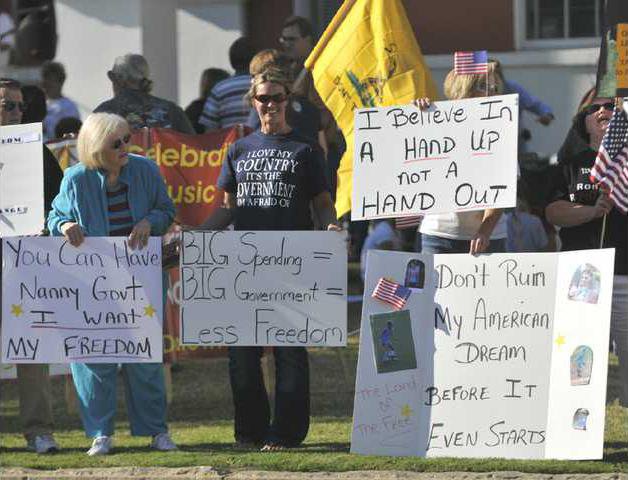 You Can Have
Nanny Govt.
I Want
My FREEDOM
Celebrat
usic
I LOVE MY
COUNTRY
IT'S THE
GOVERNMENT
I'M AFRAID OF
BIG Spending =
BIG Government =
Less Freedom
I Believe In
A HAND UP
NOT A
HAND OUT
Don't Ruin
My American
DREAM
BEFORE It
EVEN STARTS
The Land
of
The Free